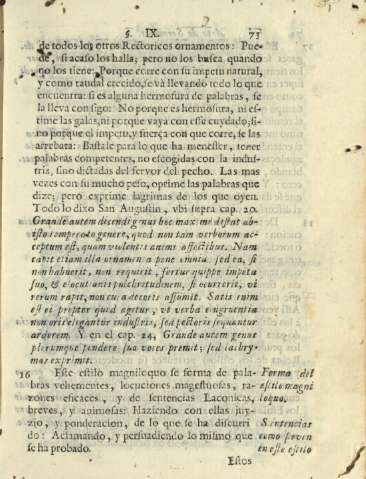 §. IX. 73
de todos los otros Rectoricos ornamentos: Pue-
de, si acaso los halla; pero no los busca quando
no los tiene: Porque corre con su impetu natural,
y como raudal crecido, se và llevando todo lo que
encuentra: si es alguna hermosura de palabras, se
la lleva consigo: No porque es hermosura, ni es-
time las galas, ni porque vaya con esse cuydado; si-
no porque el impetu, y fuerça con que corre, se las
arrebata: Bastale para lo que ha menester, tener
palabras competentes, no escogidas con la indus-
tria, sino dictadas del fervor del pecho. Las mas
vezes con su mucho peso, oprime las palabras que
dize; pero exprime lagrimas de los que oyen.
Todo lo dixo San Augustin, vbi supra cap. 20.
Grande autem dicendi genus hoc maxime distat ab
isto temperato genere, quod non tam verborum ac-
ceptum est, quam violentis animi affectibus. Nam
capit etiam illa ornamenta pene omnia. sed ea, si
non habuerit, non requirit, fertur quippe impetu
suo, & elocutionis pulchritudinem, si ocurrerit, vi
rerum rapit, non cura decoris assumit. Satis enim
est ei propter quod agitur, vt verba congruentia
non oris eligantur industria, sed pectoris sequantur
ardorem. Y en el cap. 24. Grande autem genus
plerumque pondere suo voces premit; sed lachry-
mas exprimit.
16 Este estilo magniloquo se forma de pala- Forma del
bras vehementes, locuciones magestuosas, ra- estilo magni
zones eficaces, y de sentencias Laconicas, loquo.
breves, y animosas: Haziendo con ellas juy-
zio, y ponderacion, de lo que se ha discurri Sentencias
do: Aclamando, y persuadiendo lo mismo que como sirven
se ha probado. en este estilo
Estos